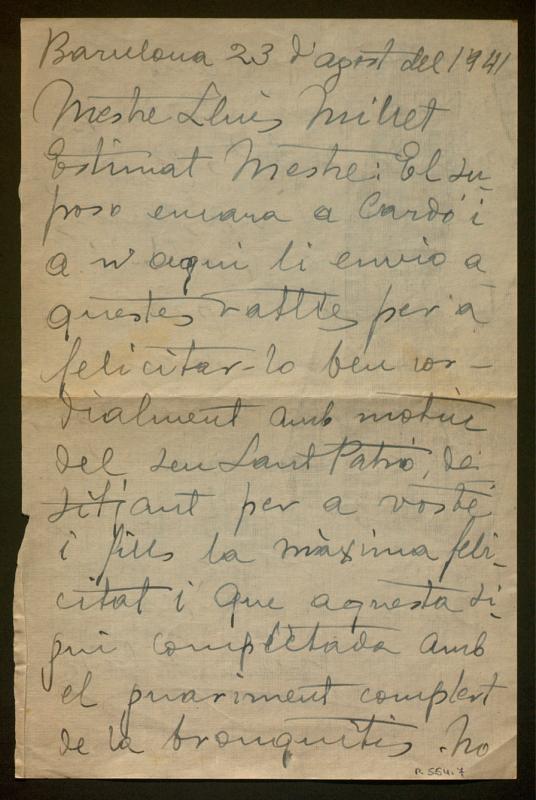 Barcelona 23 d'agost del 1941
Mestre Lluís Millet
Estimat Mestre: El su-
poso encara a Cardó i
a n'aqui li envio a
questes ratlles per a
felicitar-lo ben cor-
dialment amb motiu
del seu Sant Patró, de
sitjant per a vostè
i fills la màxima feli-
citat i que aquesta si-
gui completada amb
el guariment complert
de la bronquitis. No
P. 554.7